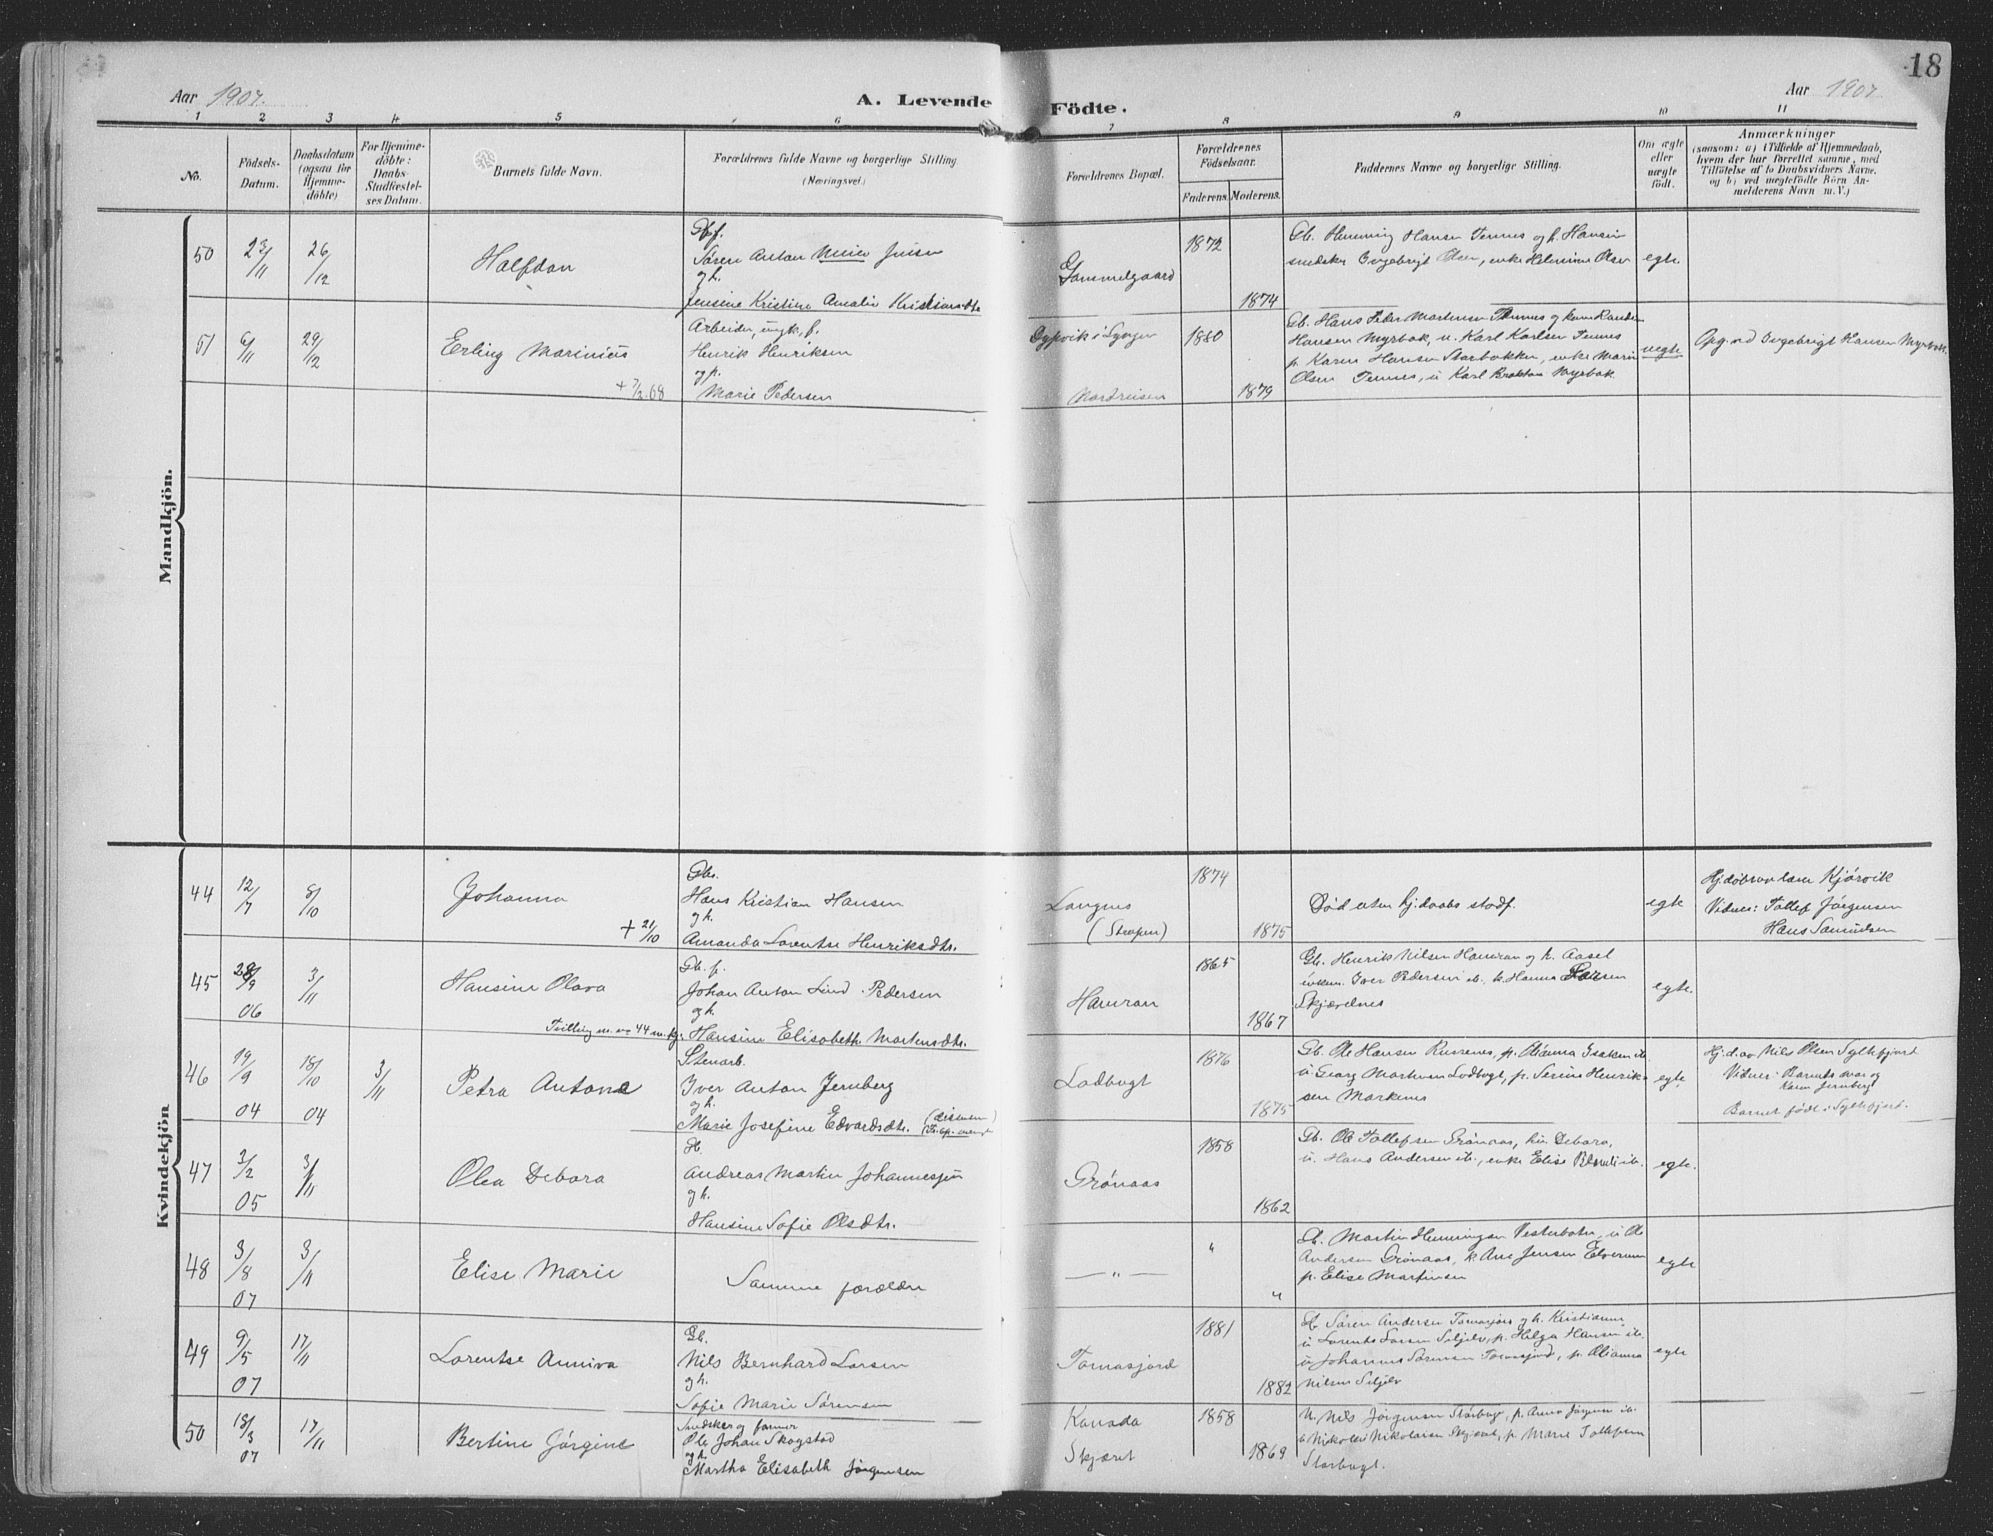 18
Aar 1907.
A. Levende Födte.
Aar 1907.
1 2 3 4 5 6 7 8 9 10 11
No.
Födsels-
Datum.
Daabsdatum
(ogsaa for
Hjemme-
döbte)
For Hjemme-
döbte:
Daabs-
Stadfæstel-
ses Datum.
Barnets fulde Navn.
Forældrenes fulde Navne og borgerlige Stilling
(Næringsvei.)
Forældrenes Bopæl.
Forældrenes
Födselsaar.
Faderens.
Moderens.
Faddernes Navne og borgerlige Stilling.
Om ægte
eller
uægte
født.
Anmærkninger
(saasom: a) i Tilfælde af Hjemmedaab,
hvem der har forrettet samme, med
Tilföielse af to Daabsvidners Navne,
og b) ved uægtefödte Börn An-
melderens Navn m. V.)
Mandkjön.
50 23/11 26/12 Halfdan
Gbf.
Søren Anton Meier Jensen
og h.
Jensine Kristine Amalie Kristiansdtr
Gammelgaard 1872 1874
Gb. Henning Hansen Tennes og h. Hansine
snedker Ingebrigt Olsen, enke Helmine Olsen
egte
51 6/11 29/12 Erling Marinius
+ 7/2.68
Arbeider, ungk., f.
Henrik Henriksen
og p.
Marie Pedersen
Dypvik i Lyngen 1880
Nordreisen 1879
Gb. Hans Peder Mortensen Tennes og kone
Hansen Myrbak, u. Karl Karlsen Tennes
p. Karen Hansen Storbakken, enke Marie
Olsen Tennes, u Karl Myrbak
uegte
Opg. ved Ingebrigt Hansen Myrbak.
Kvindekjön
44 12/7 8/10 Johanna
+ 21/10
Gb.
Hans Kristian Hansen
og h.
Amanda Lorentse Henriksdtr.
Langnes
1874 1875
Død uten hj.daabs stadf.
egte
Hj.døbt av lærer Kjørvik
Vidner: Tollef Jørgensen
Hans Samuelsen
45 28/9 06 3/11 Hansine Olava
Tvilling m. no 44 m.kj.
Gb. f.
Johan Anton Lind Pedersen
og h.
Hansine Elisabeth Mortensdtr.
Hamran 1865 1867
Gb. Henrik Nilsen Hamran og h. Aasel
ungkm. Iver Pedersen ib. h. Hanna Larsen
Skjævelnes
egte.
46 19/9 04 18/10 04 3/11 Petra Antona
Stenarb.
Iver Anton Jernberg
og h.
Marie Josefine Edvardsdtr.
Lodbugt 1876 1875
Gb. Ole Hansen Russenes, p. Olianna Isaksen ib.
u. Georg Mortensen Lodbugt, p. Serine Henrik-
sen Markenes
egte.
Hj.d. av Nils Olsen Syltefjord
Vidner: Barnets mor og
Karen Jernberg
Barnet født i Syltefjord.
47 3/2 05 3/11 Olea Debora
H.
Andreas Martin Johannesen
og h.
Hansine Sofie Olsdtr.
Grønaas 1858 1862
Gb. Ole Tollefsen Grønaas, h. Debora,
u. Hans Andersen ib., enke Elise ib.
egte.
48 3/8 07 3/11 Elise Marie
Samme forældre
— " — " "
Gb. Martin Henningsen Vesterbotn, u. Ole
Andersen Grønaas, p. Ane Jensen Elvevoll
p. Elise Martinsen
egte
49 9/5 07 17/11 Lorentse Anniva
Gb.
Nils Bernhard Larsen
og h.
Sofie Marie Sørensen
Tomasjord 1881 1882
Gb Søren Andersen Tomasjord og h. Kristianna,
u Lorents Larsen Seljelv, p. Helga Hansen ib.
u Johannes Sørensen Tomasjord, p. Olianna
Nilsen Seljelv
egte
50 18/3 07 17/11 Bertine Jørgine
Snedker og farmer
Ole Johan Skogstad
og h.
Martha Elisabeth Jørgensen
Kanada
Skjæret
1858 1869
U. Nils Jørgensen Storbugt, p. Anna Jørgensen ib.
u Nikolai Nikolaisen Skjæret, p Marie Tollefsen
Storbugt.